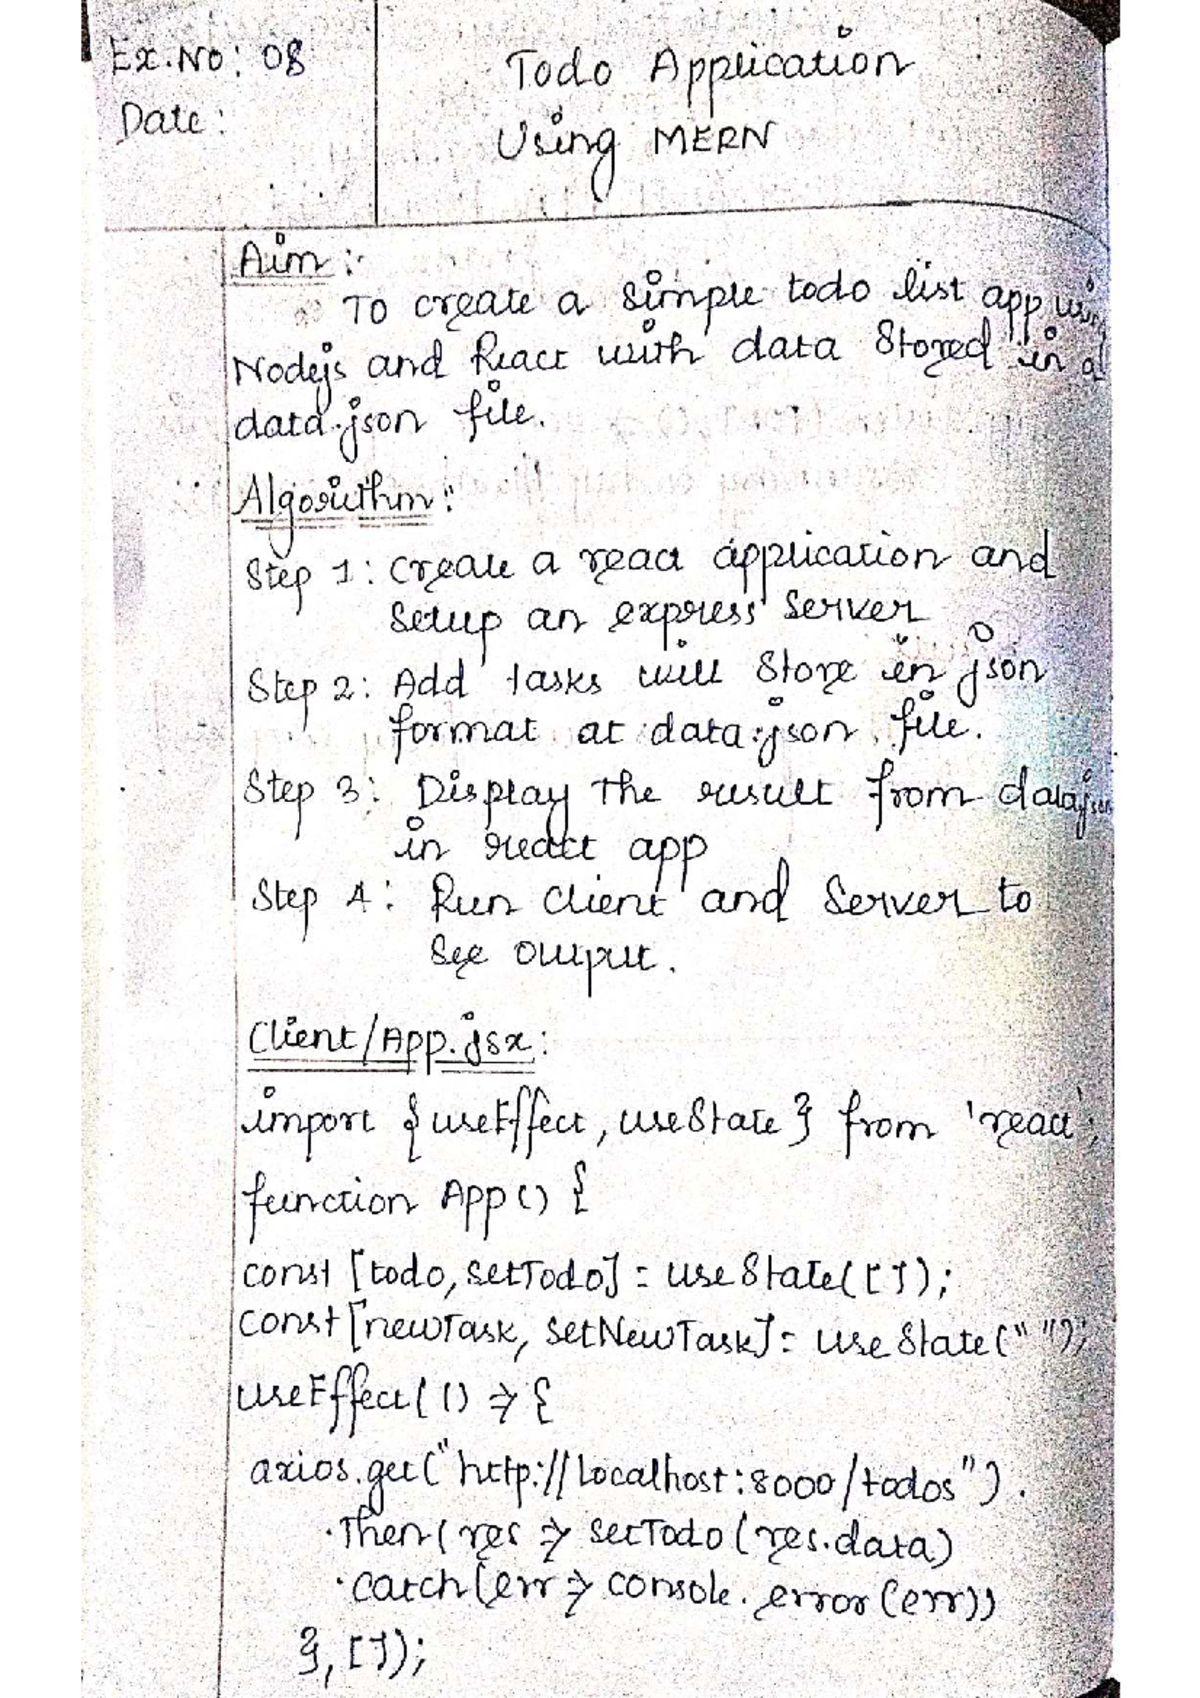 Ex.No: 08
Date:
Todo Application
Using MERN
Aim:-
To create a simple todo list app using
Nodejs and React with data stored in a
data.json file.
Algorithm:
Step 1: Create a react application and
setup an express server
Step 2: Add tasks will store in json
format at data.json file.
Step 3: Display the result from data.json
in react app
Step 4: Run client and server to
see output.
Client/App.jsx:
import { useEffect, useState } from 'react';
function App() {
const [todo, setTodo] = useState([]);
const [newTask, setNewTask] = useState(" ");
useEffect(() => {
axios.get("http://localhost:8000/todos").
.then(res => setTodo(res.data)
.catch(err => console.error(err))
}, []);